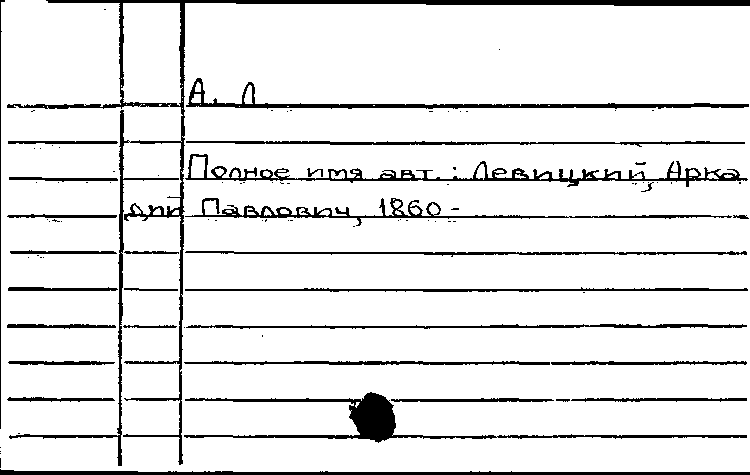 А. Л.
Полное имя авт.: Левицкий, Арка
дий Павлович, 1860-